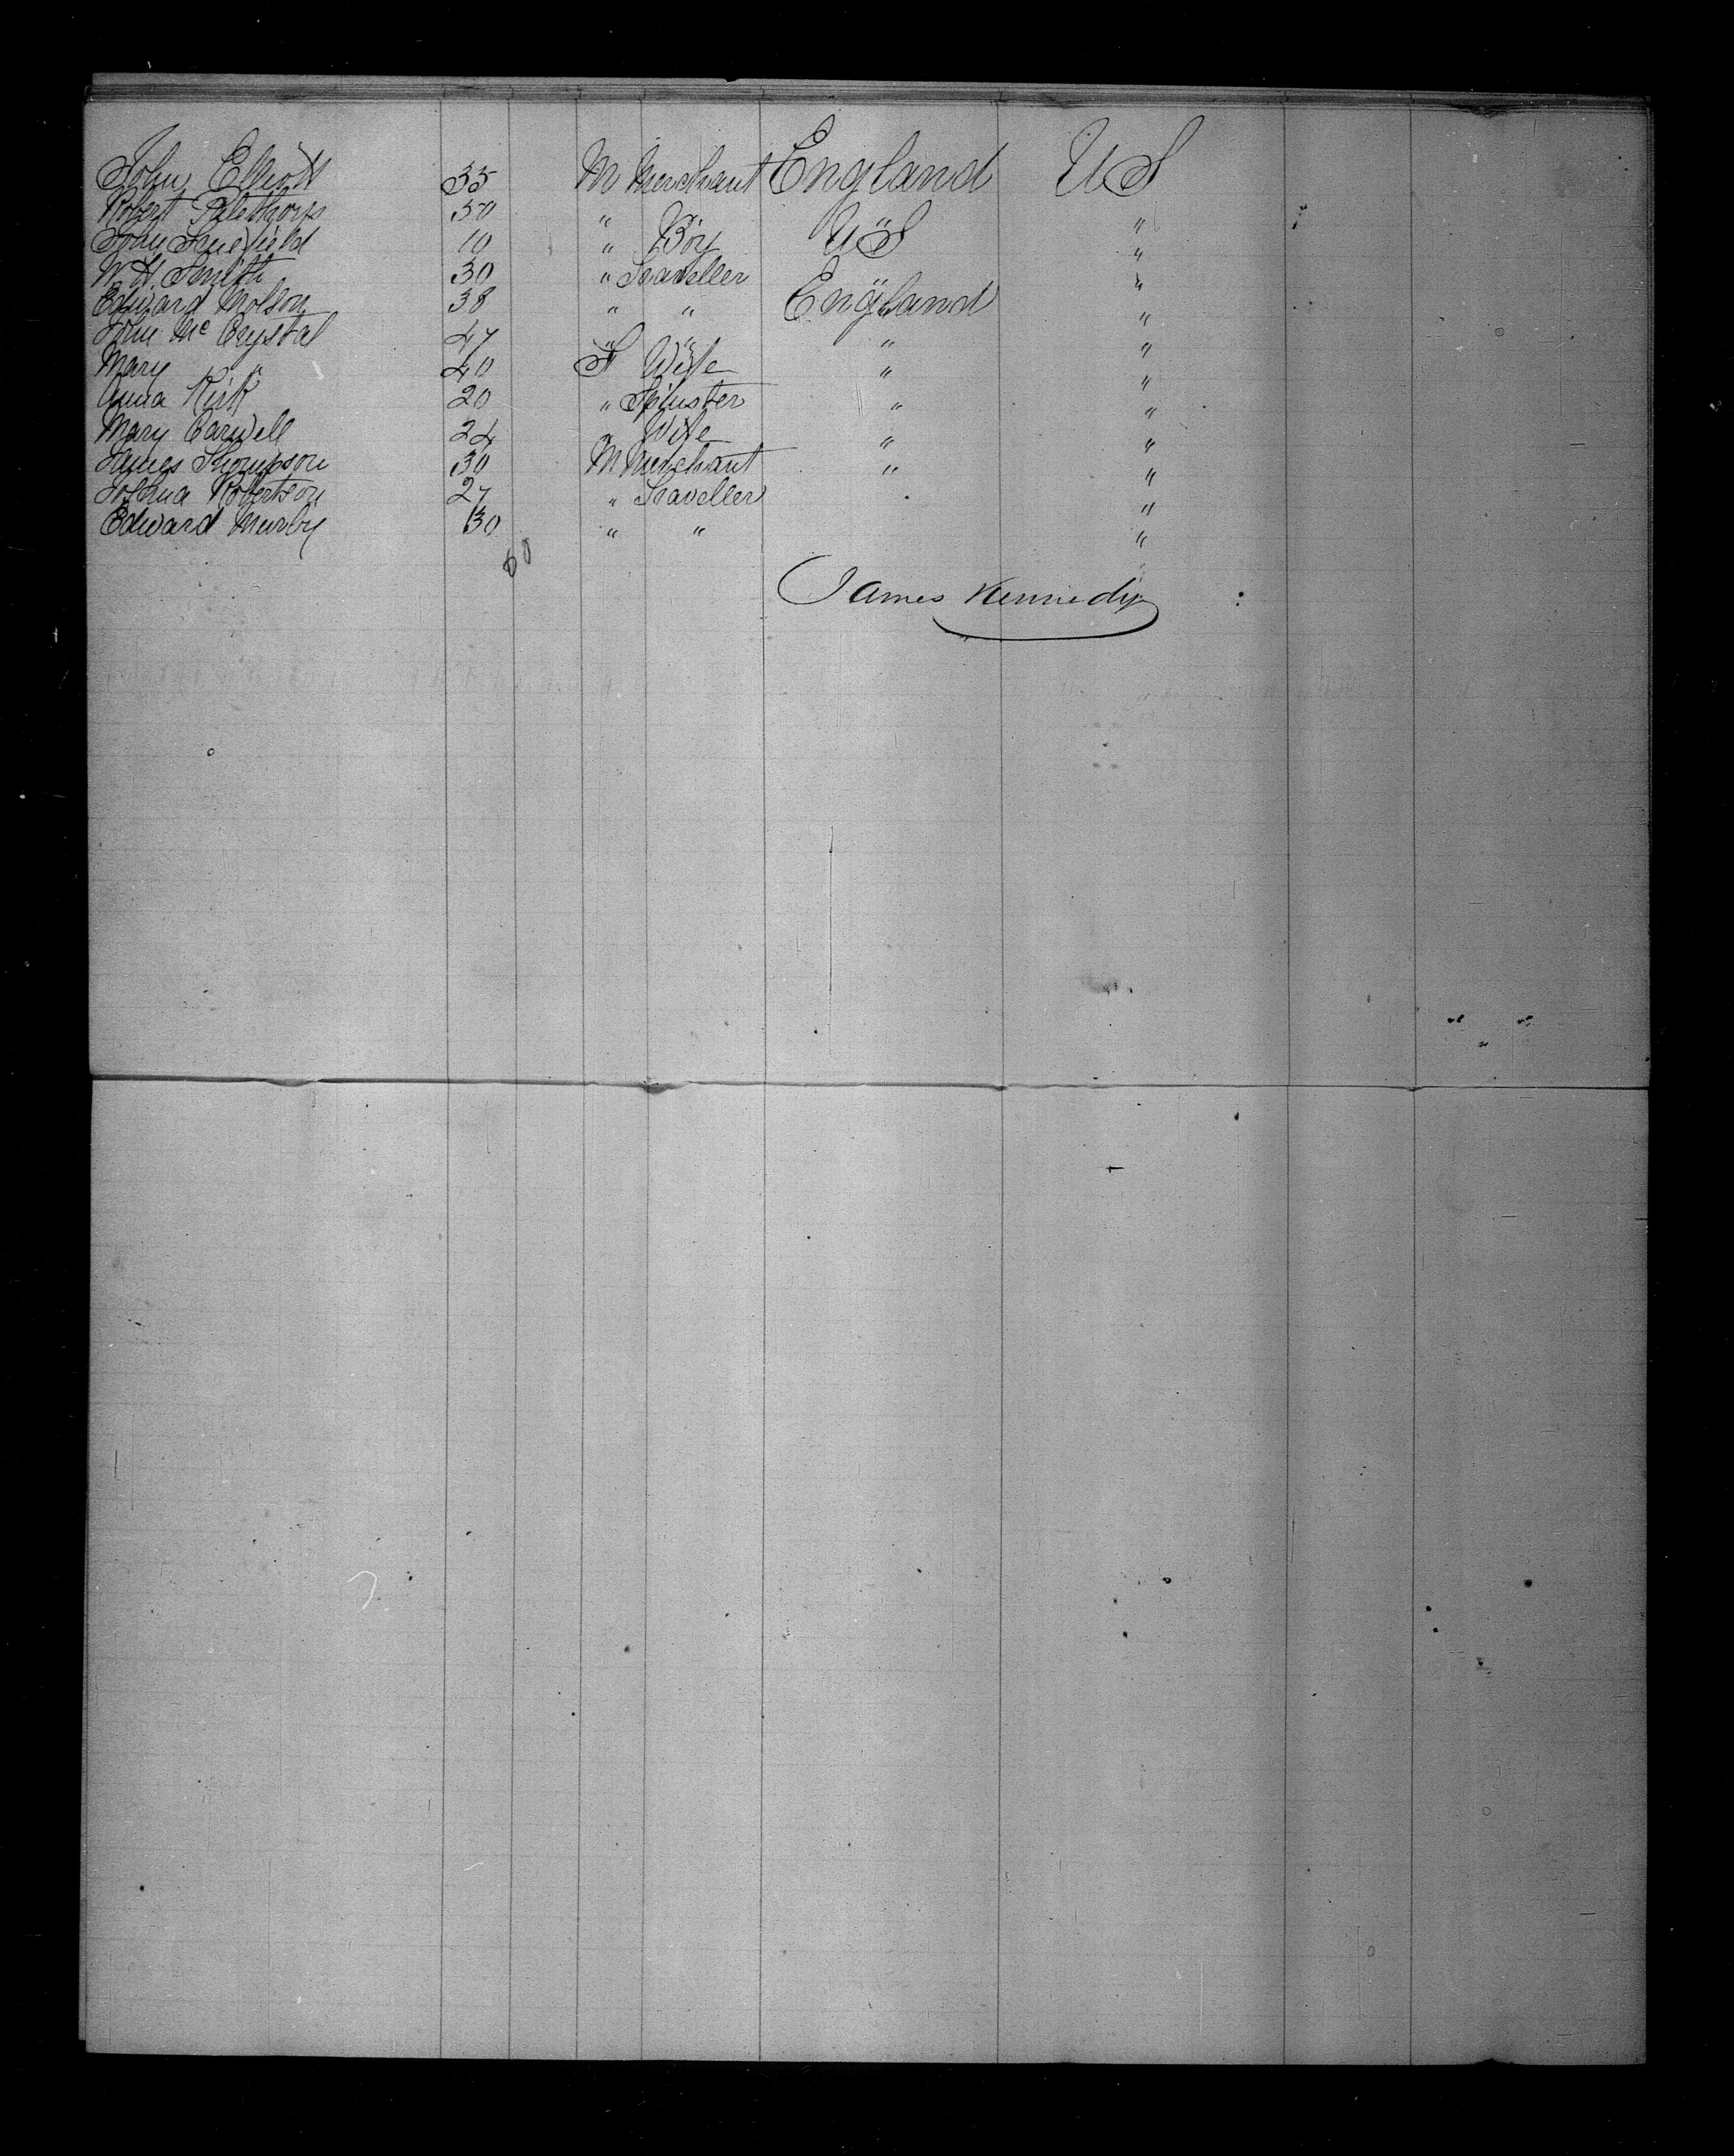 John Elliott 35 M Merchant England US
Robert Palethorp 50 " " " "
John Sheffield 10 " Boy US "
W. H. Smith 30 " Traveller " "
Edward Molson 38 " " England "
John McCrystal 47 " " " "
Mary " 40 F Wife " "
Anna Kirk 20 " Spinster " "
Mary Carwell 24 " Wife " "
James Thompson 30 M Merchant " "
Joshua Robertson 27 " Traveller "
Edward Murby 30 " " "
60
James Kennedy